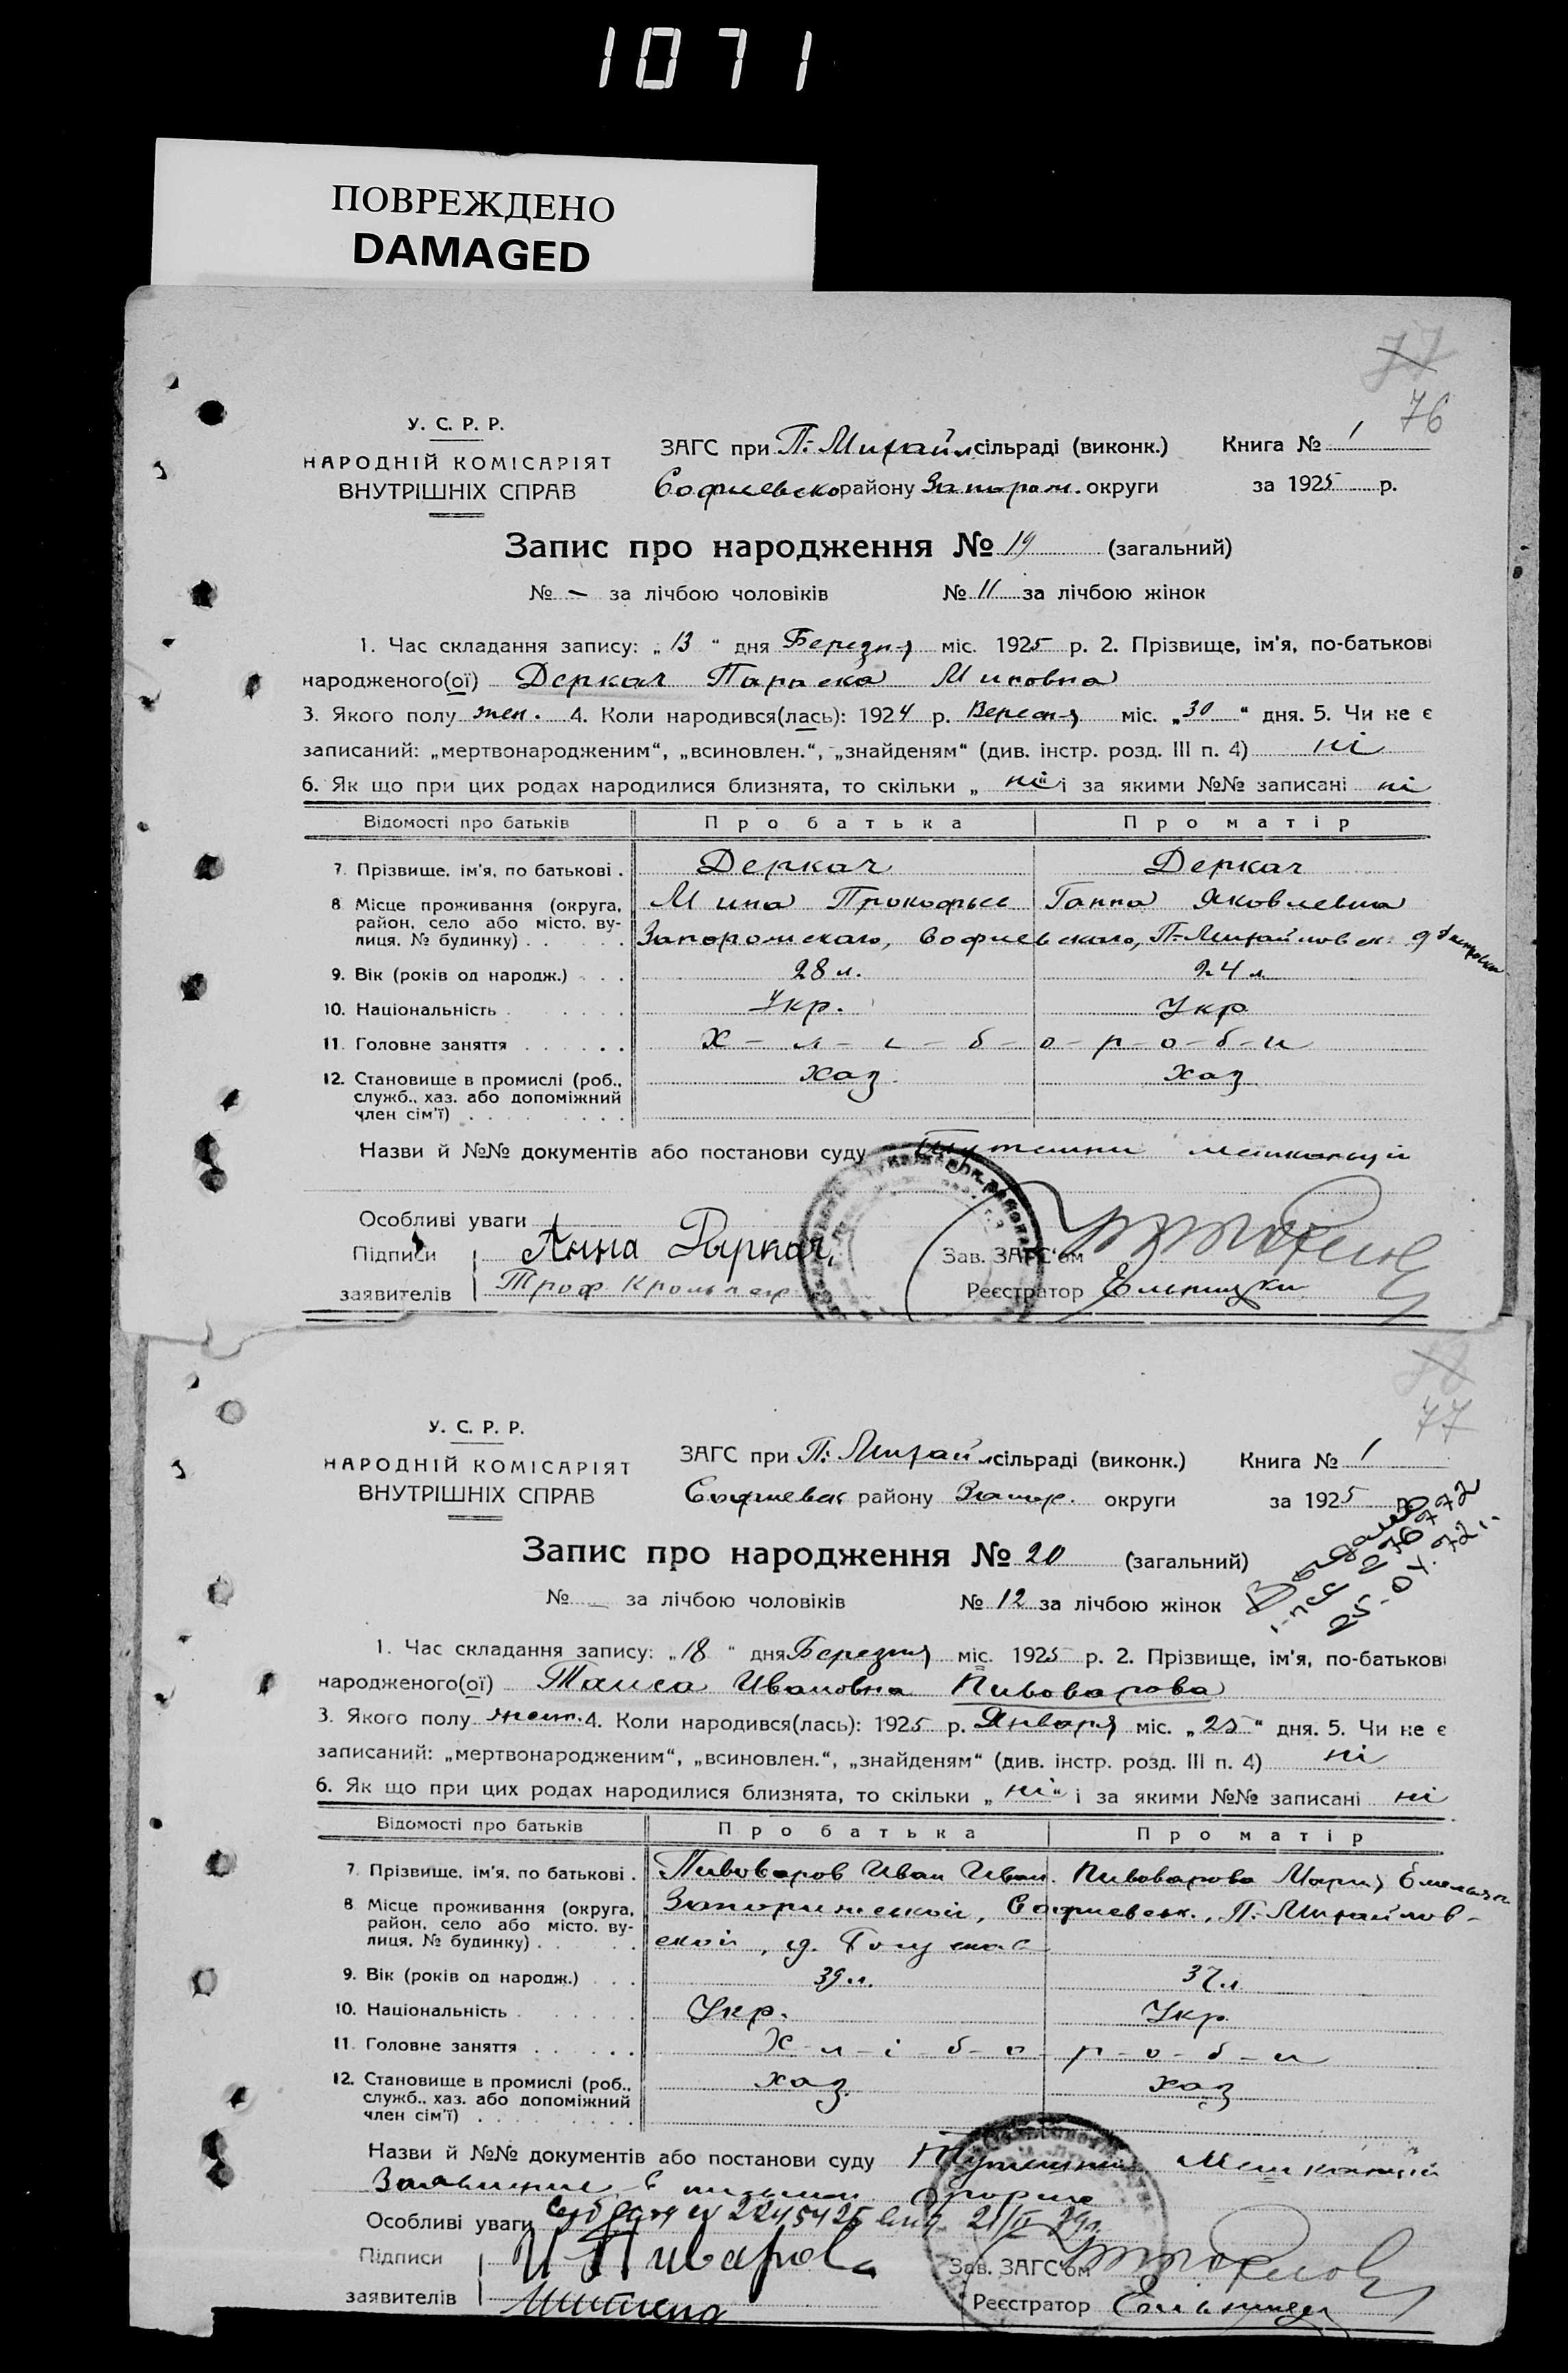 1071
ПОВРЕЖДЕНО
DAMAGED
77
76
У. С. Р. Р.
НАРОДНІЙ КОМІСАРІЯТ
ВНУТРІШНІХ СПРАВ
ЗАГС при П.-Михайл сільраді (виконк.) Книга № 1
Софиевско району Запорож. округи за 1925 р.
Запис про народження № 19 (загальний)
№ – за лічбою чоловіків № 11 за лічбою жінок
1. Час складання запису: „ 13 “ дня Березня міс. 1925 р. 2. Прізвище, ім'я, по-батькові
народженого(ої) Деркач Параска Миновна
3. Якого полу жен. 4. Коли народився(лась): 1924 р. Вересня міс. „ 30 “ дня. 5. Чи не є
записаний: „мертвонародженим“, „всиновлен.“, „знайденям“ (див. інстр. розд. III п. 4) ні
6. Як що при цих родах народилися близнята, то скільки „ ні “ і за якими №№ записані ні
Відомості про батьків Про батька Про матір
7. Прізвище, ім'я, по батькові . Деркач Деркач
8 Місце проживання (округа, район, село або місто, вулиця, № будинку) . . Мина Прокофьев Ганна Яковлевна
Запорожскаго, Софиевскаго, П.-Михайловск.
9. Вік (років од народж.) . . 28 л. 24 л
10. Національність . Укр. Укр
11. Головне заняття . Х-л-і-б-о-р-о-б-и
12. Становище в промислі (роб., служб., хаз. або допоміжний член сім'ї) . хаз. хаз
Назви й №№ документів або постанови суду Тутешни мешканци
Особливі уваги
Підписи Анна Деркач Зав. ЗАГС'ом
заявителів Реєстратор
77
У. С. Р. Р.
НАРОДНІЙ КОМІСАРІЯТ
ВНУТРІШНІХ СПРАВ
ЗАГС при П.-Михайл сільраді (виконк.) Книга № 1
Софиевск району Запор. округи за 1925 р.
Запис про народження № 20 (загальний)
№ – за лічбою чоловіків № 12 за лічбою жінок
1. Час складання запису: „ 18 “ дня Березня міс. 1925 р. 2. Прізвище, ім'я, по-батькові
народженого(ої) Таиса Ивановна Пивоварова
3. Якого полу жен. 4. Коли народився(лась): 1925 р. Января міс. „ 25 “ дня. 5. Чи не є
записаний: „мертвонародженим“, „всиновлен.“, „знайденям“ (див. інстр. розд. III п. 4) ні
6. Як що при цих родах народилися близнята, то скільки „ ні “ і за якими №№ записані ні
Відомості про батьків Про батька Про матір
7. Прізвище, ім'я, по батькові . Пивоваров Иван Иван. Пивоварова Мария Емельян
8 Місце проживання (округа, район, село або місто, вулиця, № будинку) . Запорижской, Софиевск., П.-Михайлов-
ской, д.
9. Вік (років од народж.) . . . 39 л. 37 л
10. Національність . Укр. Укр.
11. Головне заняття . Х-л-і-б-о-р-о-б-и
12. Становище в промислі (роб., служб., хаз. або допоміжний член сім'ї) . хаз. хаз
Назви й №№ документів або постанови суду Тутешни Мешканций
Особливі уваги
Підписи Зав. ЗАГС'ом
заявителів Реєстратор